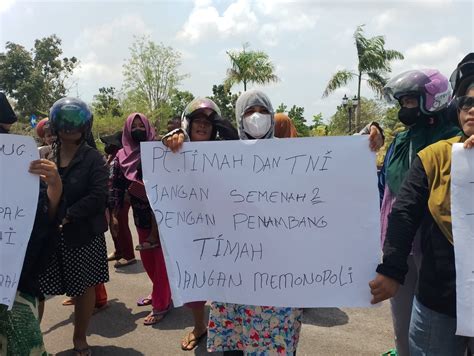 PT. TIMAH DAN TNI
JANGAN SEMENAH2
DENGAN PENAMBANG
TIMAH
JANGAN MEMONOPOLI